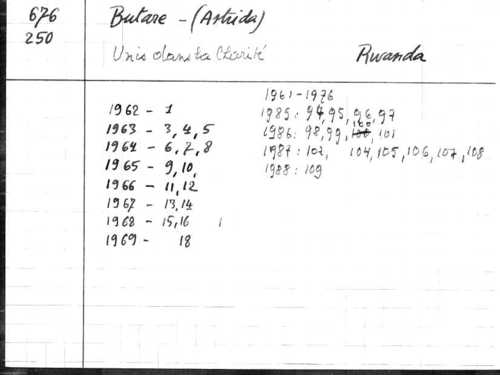 676
250
Butare - (Astrida)
Unis dans la Charité
Rwanda
1962 - 1
1963 - 3, 4, 5
1964 - 6, 7, 8
1965 - 9, 10,
1966 - 11, 12
1967 - 13, 14
1968 - 15, 16
1969 - 18
1961 - 1976
1985: 94, 95, 96, 97
1986: 98, 99, 100, 101
1987: 102, 104, 105, 106, 107, 108
1988: 109